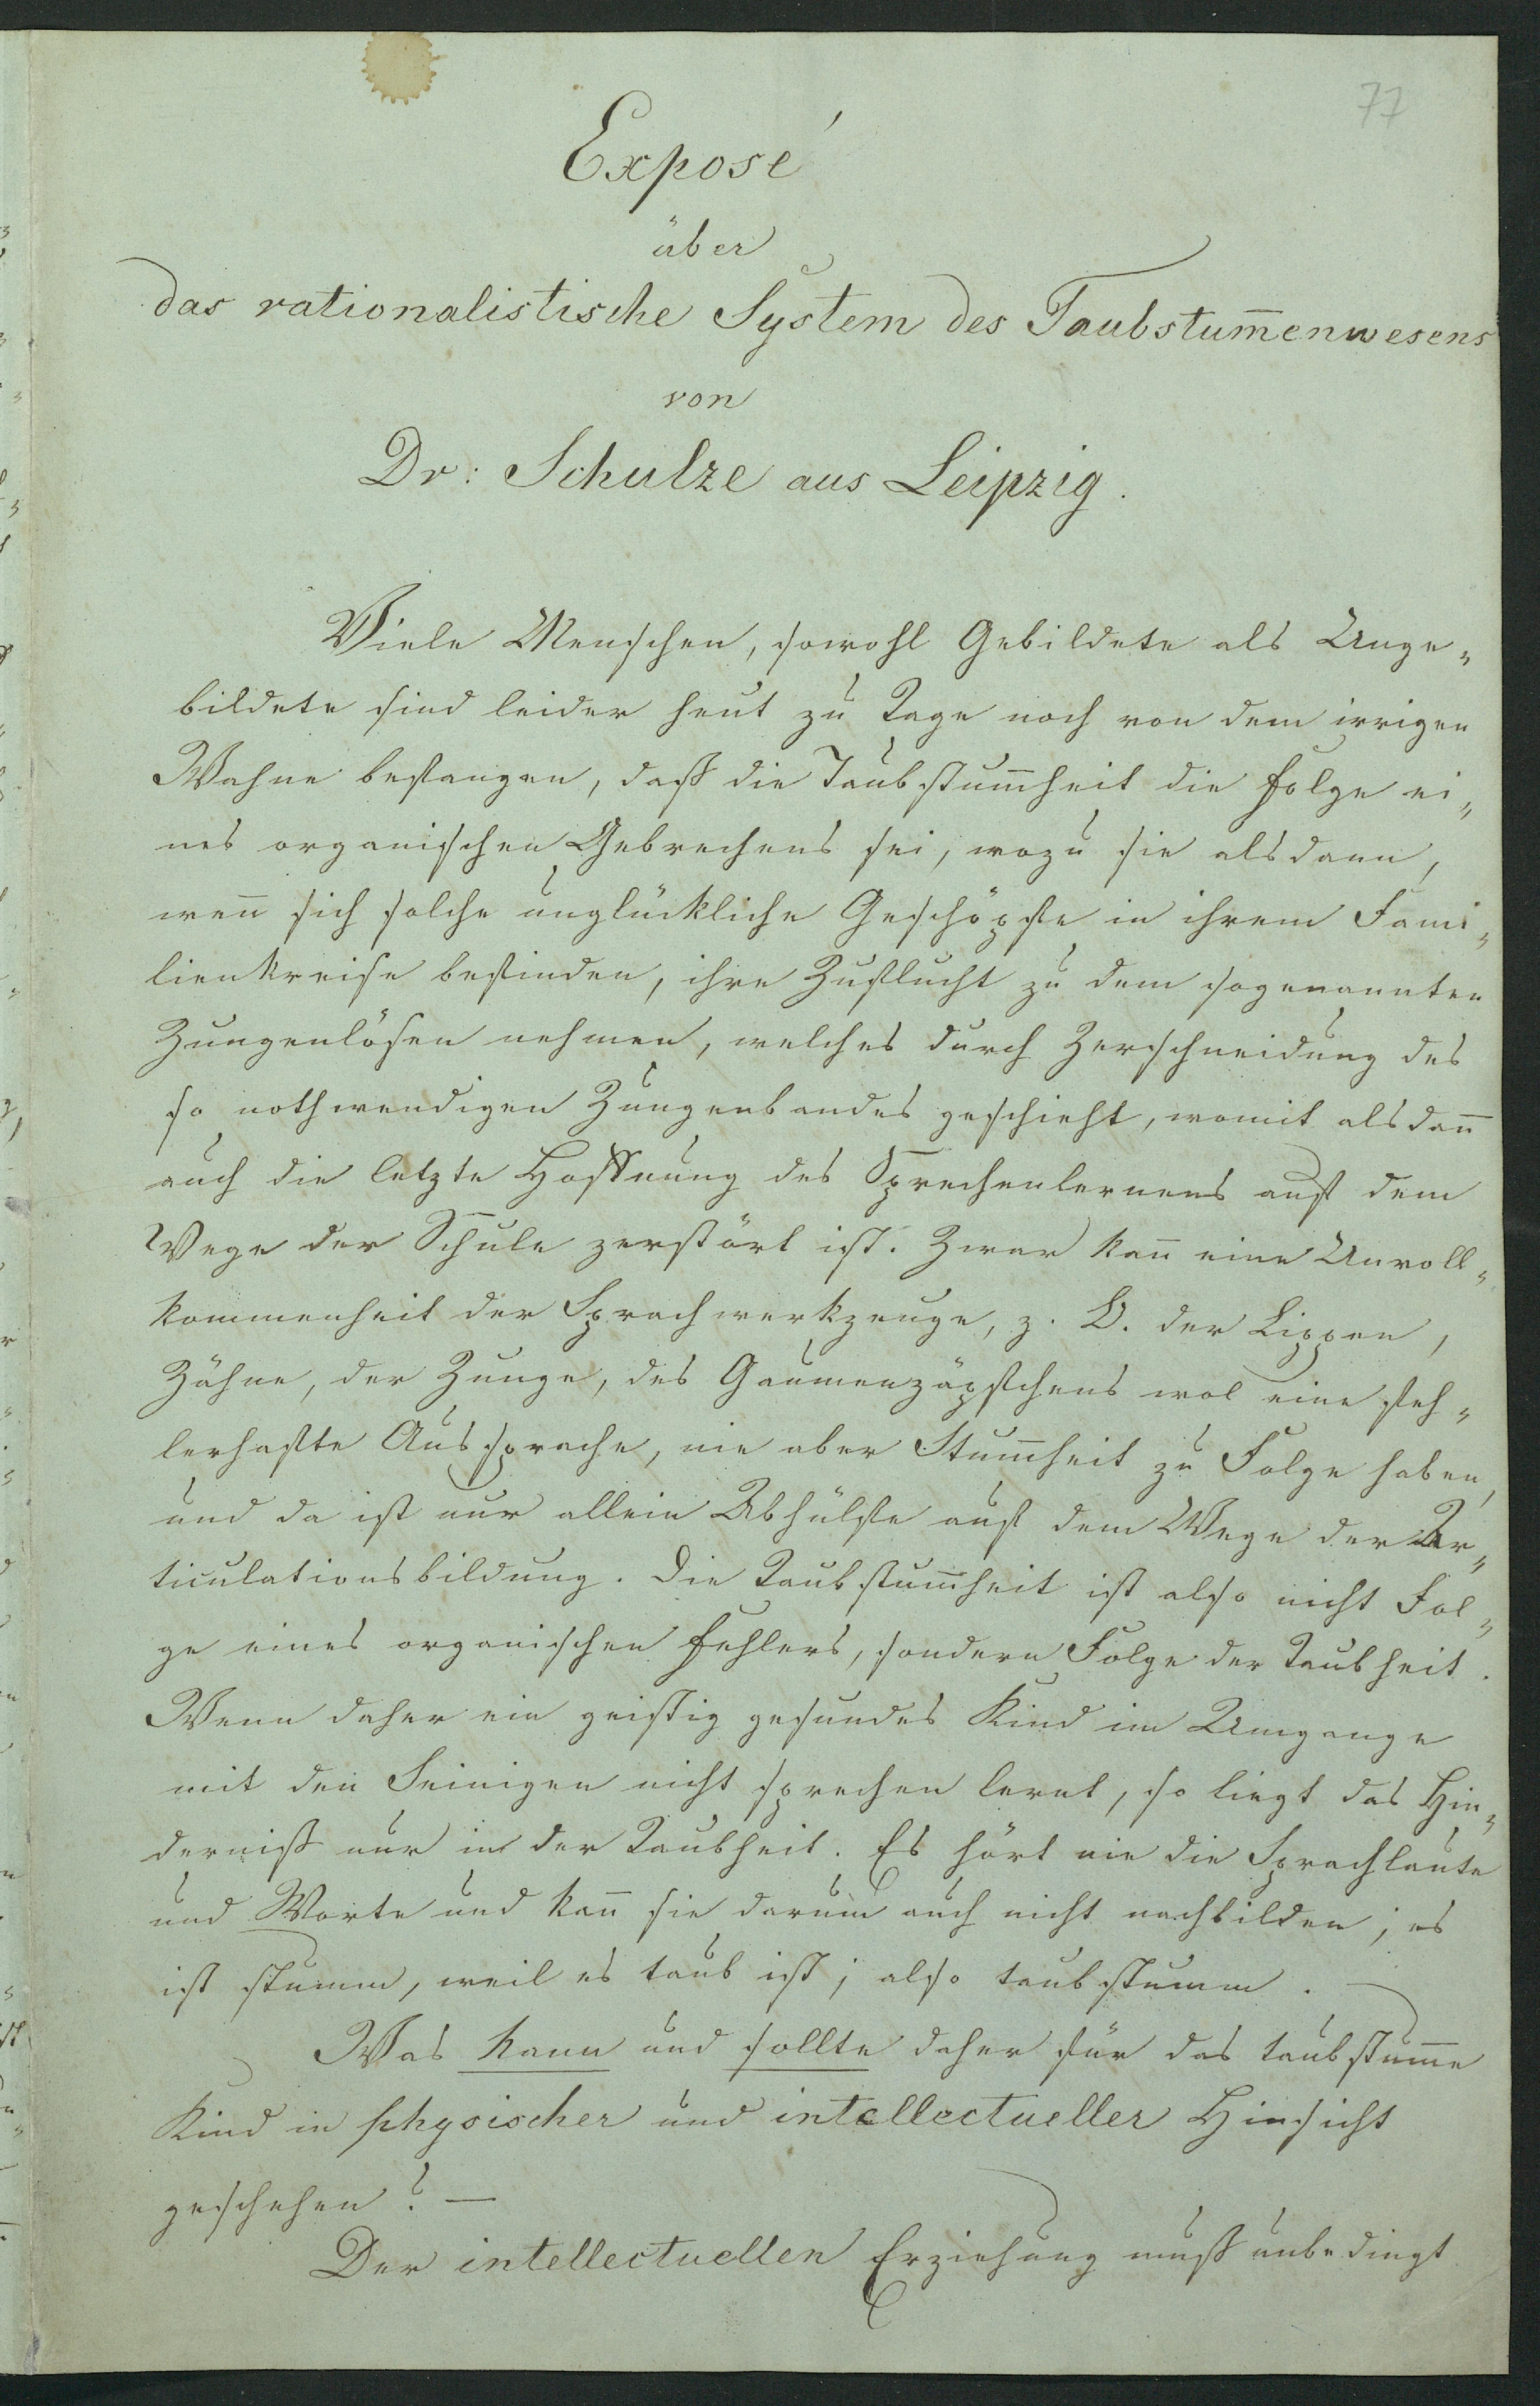 77
Exposé
über
das rationalistische System des Taubstum̅enwesens
von
Dr: Schulze aus Leipzig.
Viele Menschen, sowohl Gebildete als Unge„
bildete sind leider heut zu Tage noch von dem irrigen
Wahne befangen, daß die Taubstum̅heit die Folge ei„
nes organischen Gebrechens sei, wozu sie alsdann,
wen̅ sich solche unglückliche Geschöpfe in ihrem Fami„
lienkreise befinden, ihre Zuflucht zu dem sogenannten
Zungenlösen nehmen, welches durch Zerschneidung des
so nothwendigen Zungenbandes geschieht, womit alsdan̅
auch die letzte Hoffnung des Sprechenlernens auf dem
Wege der Schule zerstört ist. Zwar kan̅ eine Unvoll„
kommenheit der Sprachwerkzeuge, z. B. der Lippen,
Zähne, der Zunge, des Gaumenzäpfchens wol eine feh„
lerhafte Aussprache, nie aber Stum̅heit zu Folge haben,
und da ist nur allein Abhülfe auf dem Wege der Ar„
ticulationsbildung. Die Taubstum̅heit ist also nicht Fol„
ge eines organischen Fehlers, sondern Folge der Taubheit.
Wenn daher ein geistig gesundes Kind im Umgange
mit den Seinigen nicht sprechen lernt, so liegt das Hin„
derniß nur in der Taubheit. Es hört nie die Sprachlaute
und Worte und kan̅ sie darum auch nicht nachbilden; es
ist stumm, weil es taub ist; also taubstumm. —
Was kann und sollte daher für das taubstum̅e
Kind in physischer und intellectueller Hinsicht
geschehen? —
Der intellectuellen Erziehung muß unbedingt